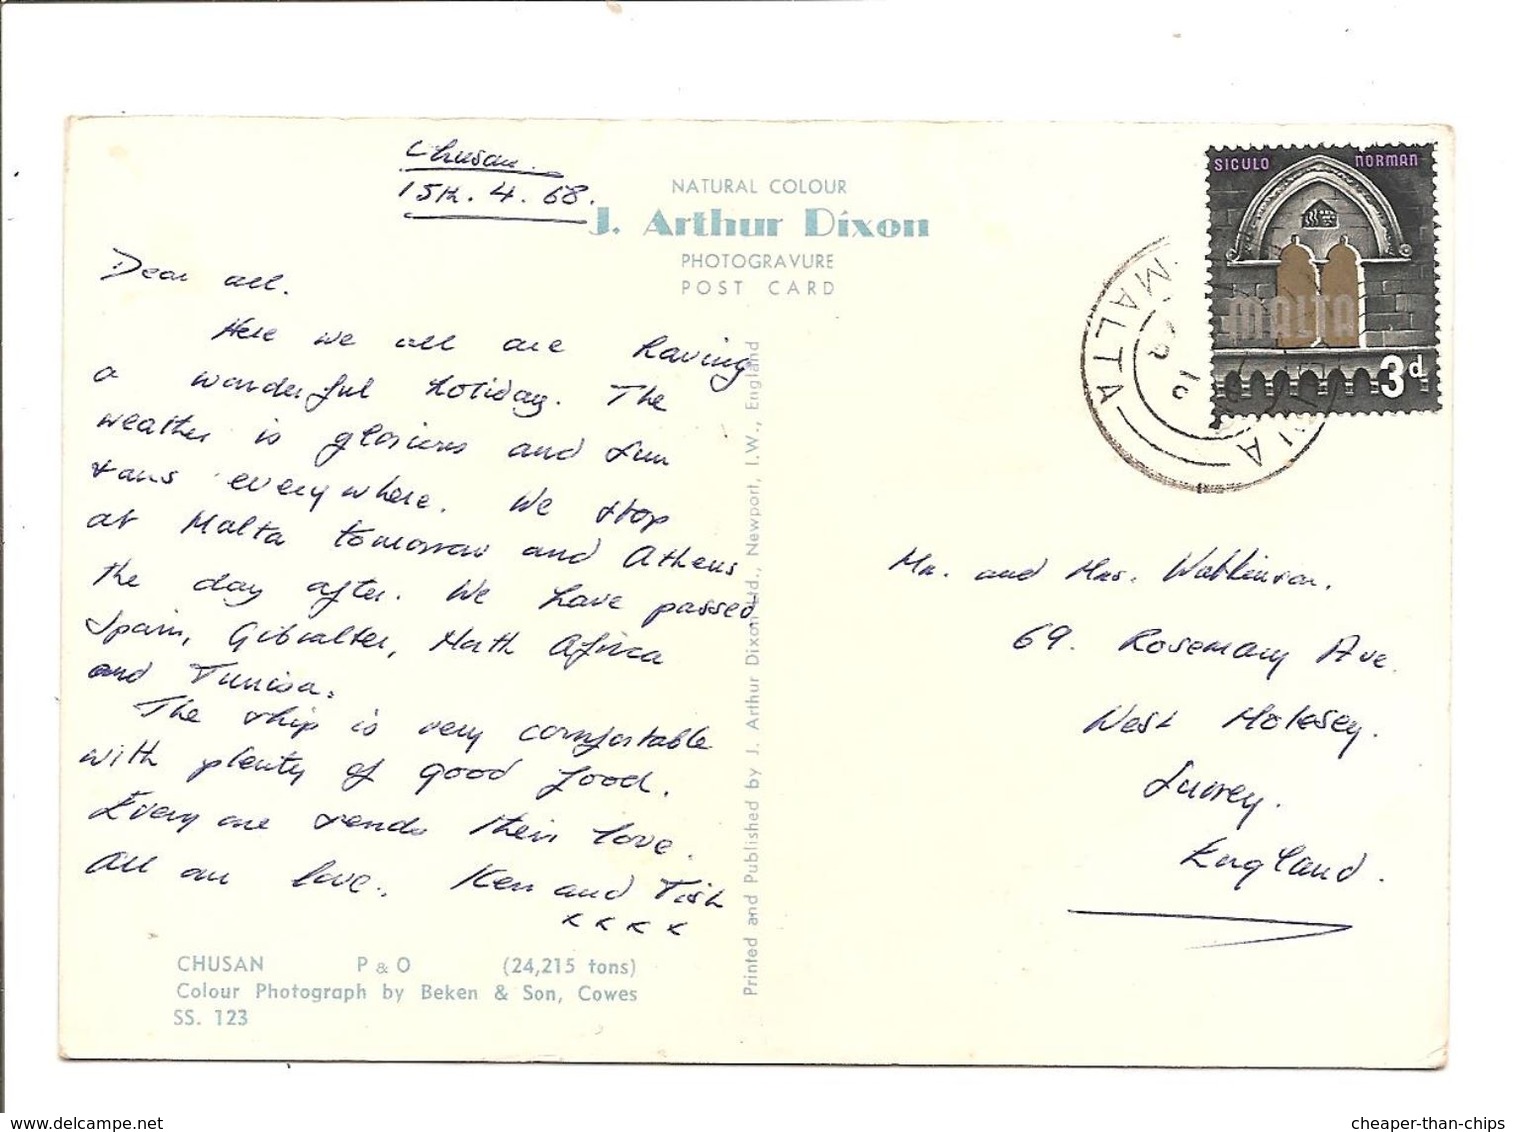 Chusan.
15th. 4. 68.
NATURAL COLOUR
J. Arthur Dixon
PHOTOGRAVURE
POST CARD
Dear all.
Here we all are having
a wonderful holiday. The
weather is glorious and sun
tans everywhere. We stop
at Malta tomorrow and Athens
the day after. We have passed
Spain, Gibralter, North Africa
and Tunisa.
The ship is very comfortable
with plenty of good food.
Every one sends their love.
All our love. Ken and Tish
x x x x
CHUSAN P & O (24,215 tons)
Colour Photograph by Beken & Son, Cowes
SS. 123
Printed and Published by J. Arthur Dixon Ltd., Newport, I.W., England
SICULO NORMAN
MALTA
3d
MALTA
Mr. and Mrs. Watkinson.
69. Rosemary Ave.
West Molesey.
Surrey.
England.
www.delcampe.net
cheaper-than-chips